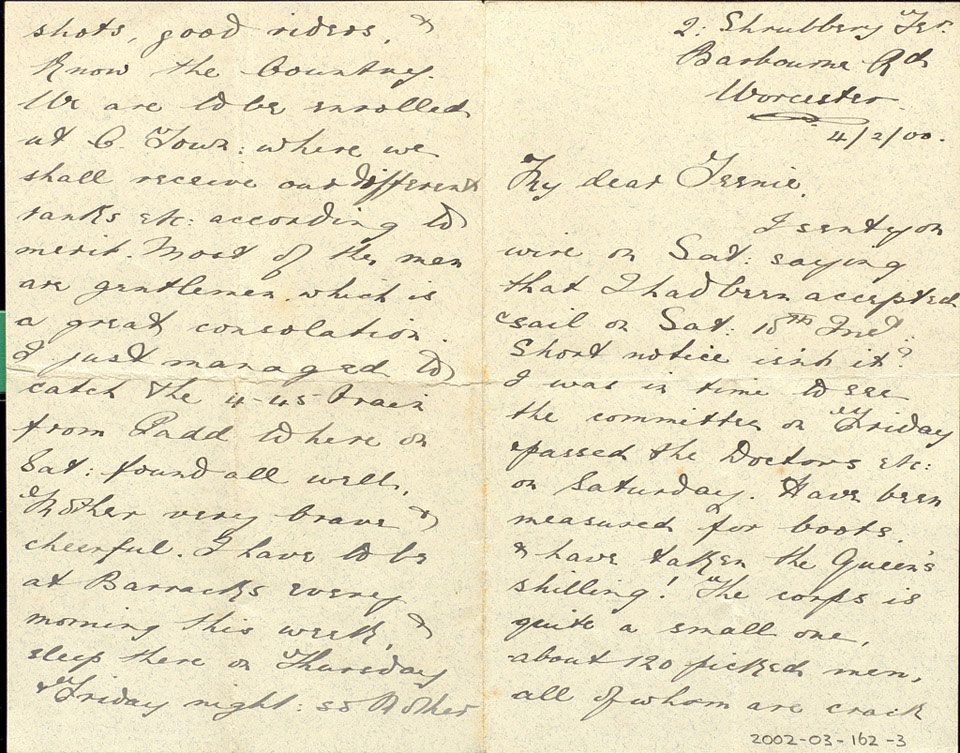 2: Shrubbery Ter.
Barbourne Rd
Worcester.
4/2/00.
My dear Teenie.
I sent you
wire on Sat: saying
that I had been accepted
& sail on Sat: 10th Inst..
Short notice isn't it?
I was in time to see
the committee on Friday
& passed the Doctors etc:
on Saturday. Have been
measured for boots.
& have taken the Queen's
shilling! The corps is
quite a small one,
about 120 picked men,
all of whom are crack
2002-03-162-3
shots, good riders, &
know the Country.
We are to be enrolled
at C. Town: where we
shall receive our different
ranks etc: according to
merit. Most of the men
are gentlemen which is
a great consolation.
I just managed to
catch the 4-45 train
from Padd to here on
Sat: found all well,
Mother very brave &
cheerful. I have to be
at Barracks every
morning this week, &
sleep there on Thursday
& Friday night: so Mother